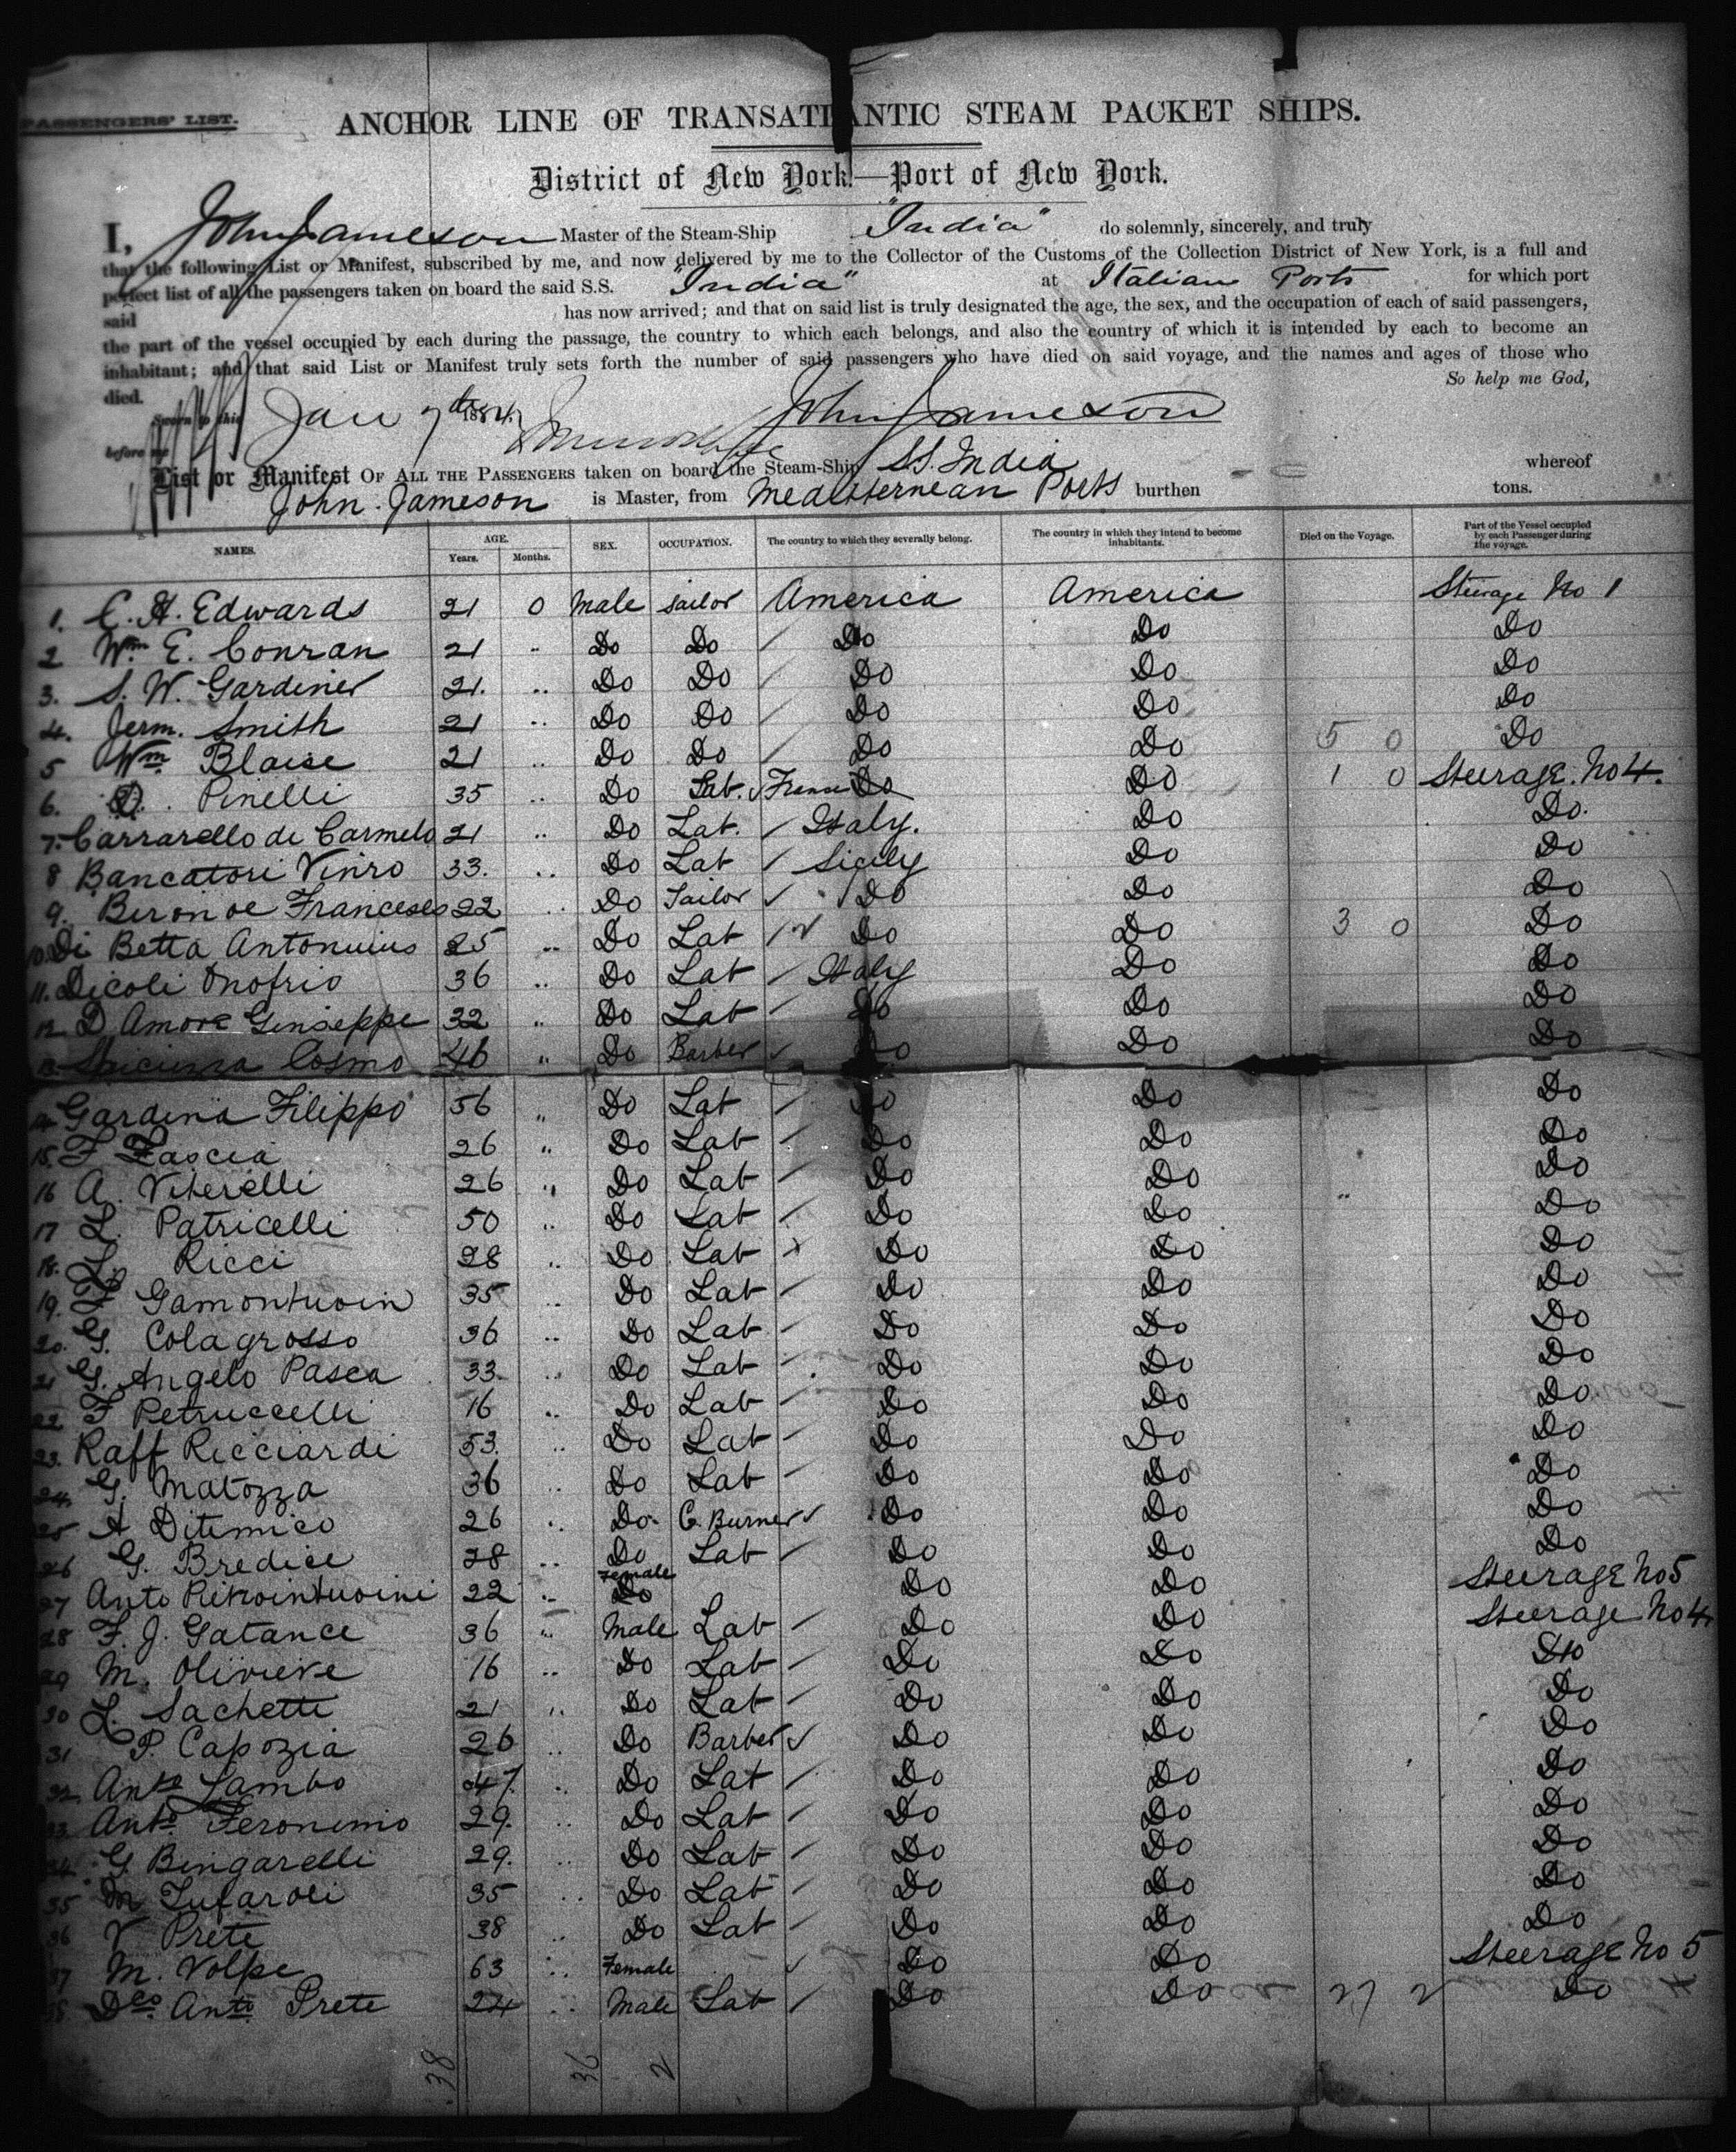 PASSENGERS' LIST.
ANCHOR LINE OF TRANSATLANTIC STEAM PACKET SHIPS.
District of New York.—Port of New York.
I, John Jameson Master of the Steam-Ship "India" do solemnly, sincerely, and truly
that the following List or Manifest, subscribed by me, and now delivered by me to the Collector of the Customs of the Collection District of New York, is a full and
perfect list of all the passengers taken on board the said S.S. "India" at Italian Ports for which port
said has now arrived; and that on said list is truly designated the age, the sex, and the occupation of each of said passengers,
the part of the vessel occupied by each during the passage, the country to which each belongs, and also the country of which it is intended by each to become an
inhabitant; and that said List or Manifest truly sets forth the number of said passengers who have died on said voyage, and the names and ages of those who
died. So help me God,
Sworn to this Jan 7th 1884. John Jameson
before me
List or Manifest OF ALL THE PASSENGERS taken on board the Steam-Ship SS. India whereof
John. Jameson is Master, from Mediternean Ports burthen tons.
NAMES. AGE. Years. Months. SEX. OCCUPATION. The country to which they severally belong. The country in which they intend to become inhabitants. Died on the Voyage. Part of the Vessel occupied by each Passenger during the voyage.
1. C. H. Edwards 21 0 Male Sailor America America Steerage No 1
2 Wm E. Conran 21 " Do Do / Do Do Do
3. S. W. Gardiner 21. " Do Do / Do Do Do
4. Jerm. Smith 21 " Do Do / Do Do Do
5 Wm Blaise 21 " Do Do / Do Do 5 0 Do
6. Pinelli 35 " Do Lab. France Do Do 1 0 Steerage. No 4.
7. Carrarello di Carmelo 21 " Do Lab. / Italy. Do Do.
8 Bancatori Vinro 33. " Do Lab / Sicily Do Do
9. Francesco 22 " Do Sailor Do Do Do
10. Di Betta Antonuius 25 " Do Lab / Do Do 3 0 Do
11. Dicoli Onofrio 36 " Do Lab / Italy Do Do
12 D Amore Genseppe 32 " Do Lab / Do Do Do
13 Cosmo 46 " Do Barber Do Do Do
14 Gardina Filippo 56 " Do Lab / Do Do Do
15. F Fascia 26 " Do Lab / Do Do Do
16 A. Viterelli 26 " Do Lab / Do Do Do
17 L. Patricelli 50 " Do Lab / Do Do Do
18. L. Ricci 28 " Do Lab Do Do Do
19. F Gamontuoin 35 " Do Lab / Do Do Do
20. G. Colagrosso 36 " Do Lab / Do Do Do
21 G. Angelo Pasca 33 " Do Lab Do Do Do
22 F Petruccelli 16 " Do Lab / Do Do Do
23. Raff Ricciardi 53. " Do Lab / Do Do Do
24. G. Matozza 36 " Do Lab / Do Do Do
25 A Ditemico 26 " Do C. Burner Do Do Do
26 G. Bredice 28 " Do Lab / Do Do Do
27 Anto Pietrointuoini 22 " Female Do Do Do Steerage No 5
28 F. J. Gatance 36 " Male Lab / Do Do Steerage No 4
29 M. Oliviere 16 " Do Lab / Do Do Do
30 L. Sachetti 21 " Do Lab / Do Do Do
31 P. Capozia 26 " Do Barber Do Do Do
32. Anto Lambo 47. " Do Lab / Do Do Do
33. Anto Feronimo 29. " Do Lab / Do Do Do
34 G Bingarelli 29. " Do Lab / Do Do Do
35 M Tufaroli 35 " Do Lab / Do Do Do
36 V Prete 38 " Do Lab / Do Do Do
37 M. Volpe 63 " Female Do Do Steerage No 5
38. Dco Anto Prete 24 " Male Lab / Do Do 27 2 Do
38 36 2